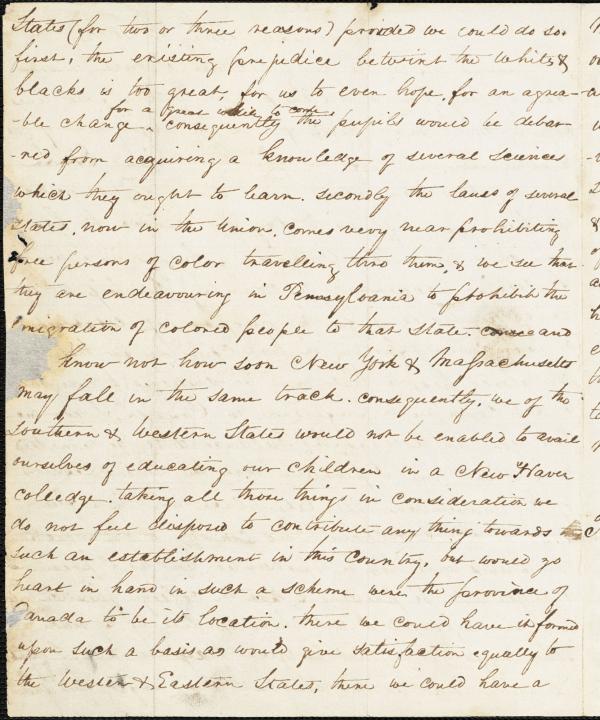 States (for two or three reasons) provided we could do so.
first, the existing prejudice betwixt the whites &
blacks is too great, for us to even hope, for an agrea-
for a great while to come
-ble change. consequently the pupils would be debar
-red from acquiring a knowledge of several sciences
which they ought to learn. secondly the laws of several
States, now in the Union, comes very near prohibiting
free persons of color travelling thro them, & we see that
they are endeavouring in Pennsylvania to prohibit the
emigration of colored people to that State. and
know not how soon New York & Massachusetts
may fall in the same track. consequently, we of the
Southern & Western States would not be enabled to avail
ourselves of educating our children in a New Haven
colledge. taking all those things in consideration we
do not feel disposed to contribute any thing towards
such an establishment in this Country, but would go
heart in hand in such a scheme were the province of
Canada to be its location. there we could have it formed
upon such a basis as would give satisfaction equally to
the Western & Eastern States, there we could have a